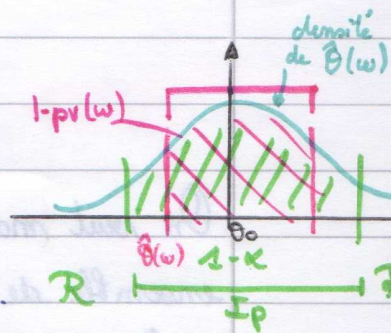 densité
de θ̂(ω)
1-pv(ω)
θ₀
θ̂(ω) 1-α
R
I_p